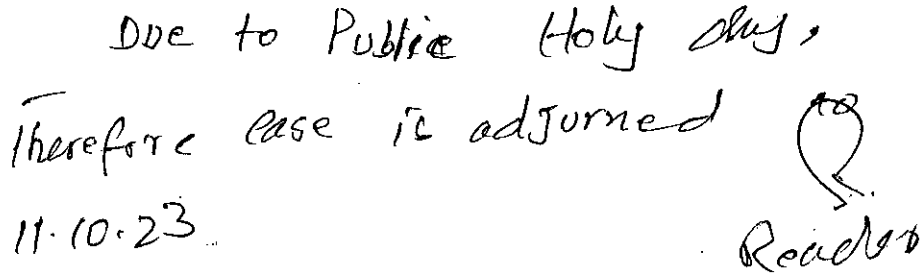 Due to Public Holy day,
Therefore case is adjurned to
11.10.23
Reader